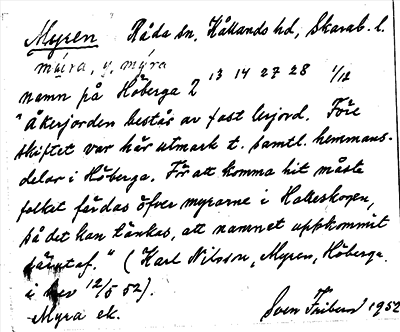 Myren Råda sn, Kållands hd, Skarab. l.
mýra, y, mýra
namn på Höberga 2 13 14 27 28 1/12
"Åkerjorden består av fast lerjord. Före
skiftet var här utmark t. samtl. hemmans-
delar i Höberga. För att komma hit måste
folket färdas öfver myrarne i Halleskogen,
så det kan tänkas, att namnet uppkommit
därutaf." (Karl Nilsson, Myren, Höberga
i brev 12/5 52).
Myra ek. Sven Friberg 1952